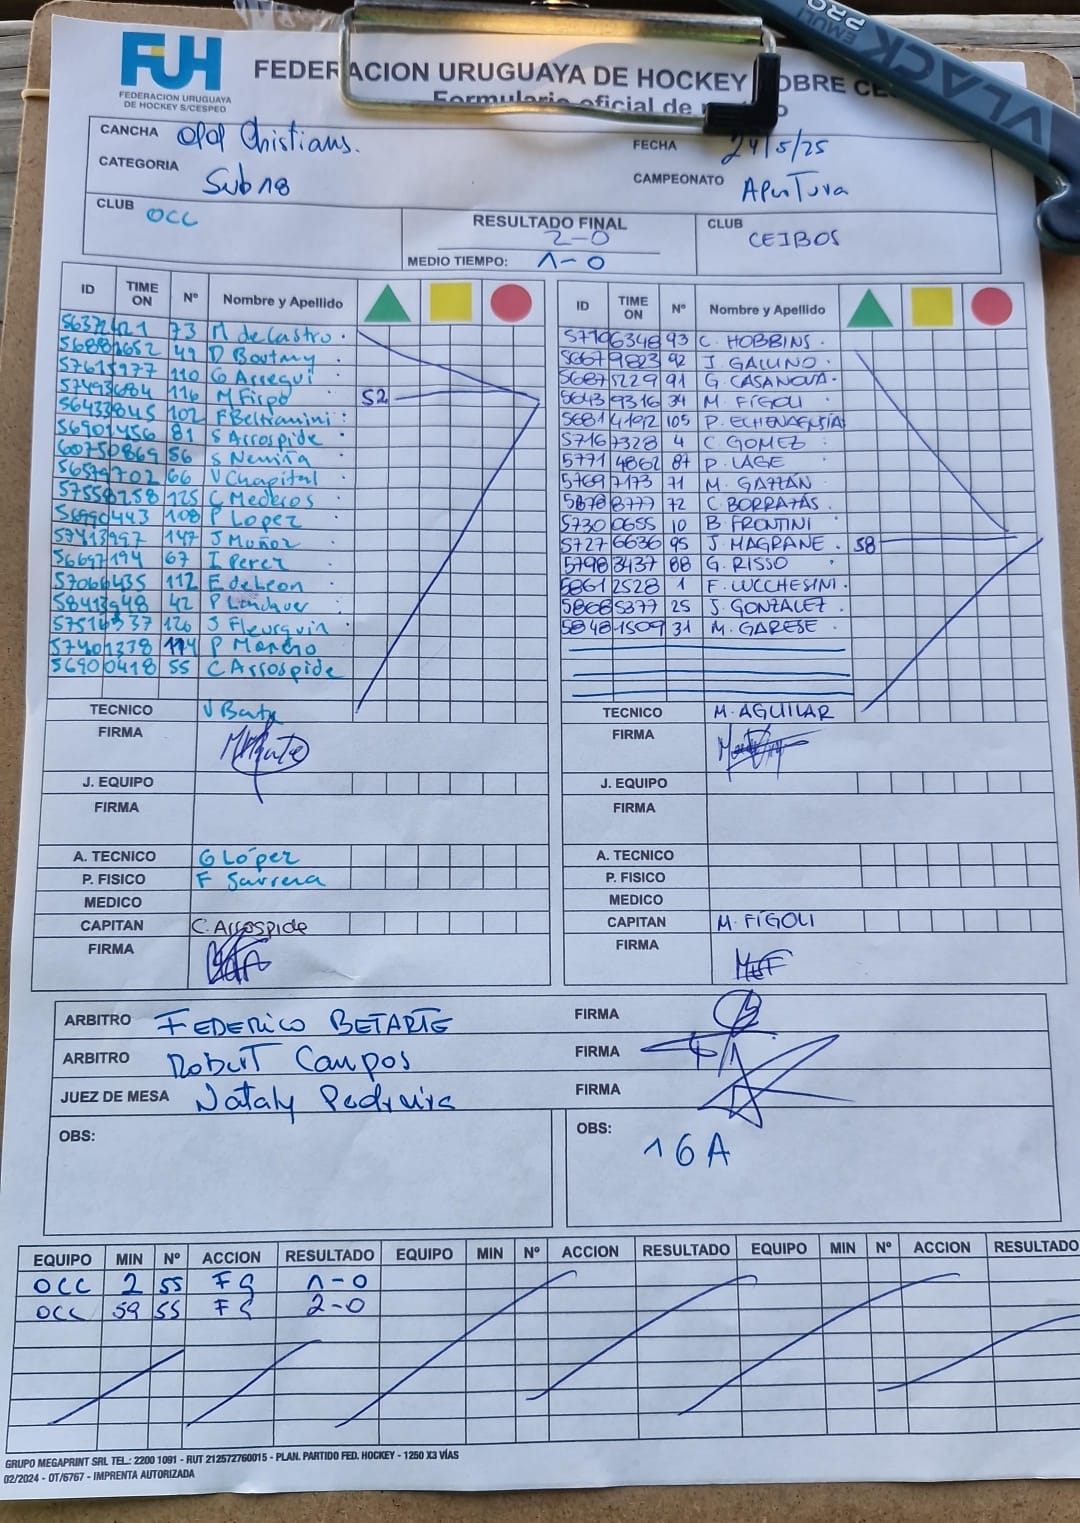 FUH
FEDERACION URUGUAYA
DE HOCKEY S/CESPED
FEDERACION URUGUAYA DE HOCKEY
Formulario oficial de
VLACK
EMULI
PRO
CANCHA Old Christians.
FECHA 24/5/25
CATEGORIA Sub18
CAMPEONATO Apertura
CLUB OCC
RESULTADO FINAL 2-0
MEDIO TIEMPO: 1-0
CLUB CEIBOS
ID TIME ON Nº Nombre y Apellido
73 M deCastro
56881652 49 D Boutmy
57615977 110 G Arregui
57493684 116 M Firpo 52
56433845 102 F Beltramini
56901456 81 S Arrospide
60750869 56 S Neriña
56579702 66 V Chapital
57558258 125 C Mederos
56990443 108 P Lopez
57413997 147 J Muñoz
56697194 67 I Perez
57066435 112 E deLeon
58413948 42 P Landauer
120 J Fleurquin
57401338 114 P Mancho
56900418 55 C Arrospide
TECNICO
FIRMA
J. EQUIPO
FIRMA
A. TECNICO G López
P. FISICO
MEDICO
CAPITAN C. Arrospide
FIRMA
ID TIME ON Nº Nombre y Apellido
57106348 93 C. HOBBINS
56679823 92 J. GALLINO
56875229 91 G. CASANOVA
56439316 34 M. FÍGOLI
56814192 105 P.
57167328 4 C. GOMEZ
57714862 87 P. LAGE
57697173 71 M. GAZZÁN
58788777 72 C. BORRAZÁS
57300655 10 B. FRONTINI
57276636 95 J. MAGRANE 58
57983437 88 G. RISSO
58612528 1 F. LUCCHESINI
58685377 25 J. GONZALEZ
58481509 31 M. GARESE
TECNICO M. AGUILAR
FIRMA
J. EQUIPO
FIRMA
A. TECNICO
P. FISICO
MEDICO
CAPITAN M. FÍGOLI
FIRMA
ARBITRO FEDERICO BETARTE FIRMA
ARBITRO Robert Campos FIRMA
JUEZ DE MESA Nataly Pedreira FIRMA
OBS:
OBS: 16 A
EQUIPO MIN Nº ACCION RESULTADO EQUIPO MIN Nº ACCION RESULTADO EQUIPO MIN Nº ACCION RESULTADO
OCC 2 55 FG 1-0
OCC 59 55 FG 2-0
GRUPO MEGAPRINT SRL TEL.: 2200 1091 - RUT 212572760015 - PLAN. PARTIDO FED. HOCKEY - 1250 X3 VÍAS
02/2024 - OT/6767 - IMPRENTA AUTORIZADA